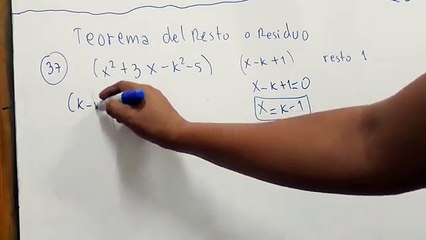 Teorema del Resto o Residuo
37 (x²+3x-k²-5) (x-k+1) resto 1
x-k+1=0
x=k-1
(k-